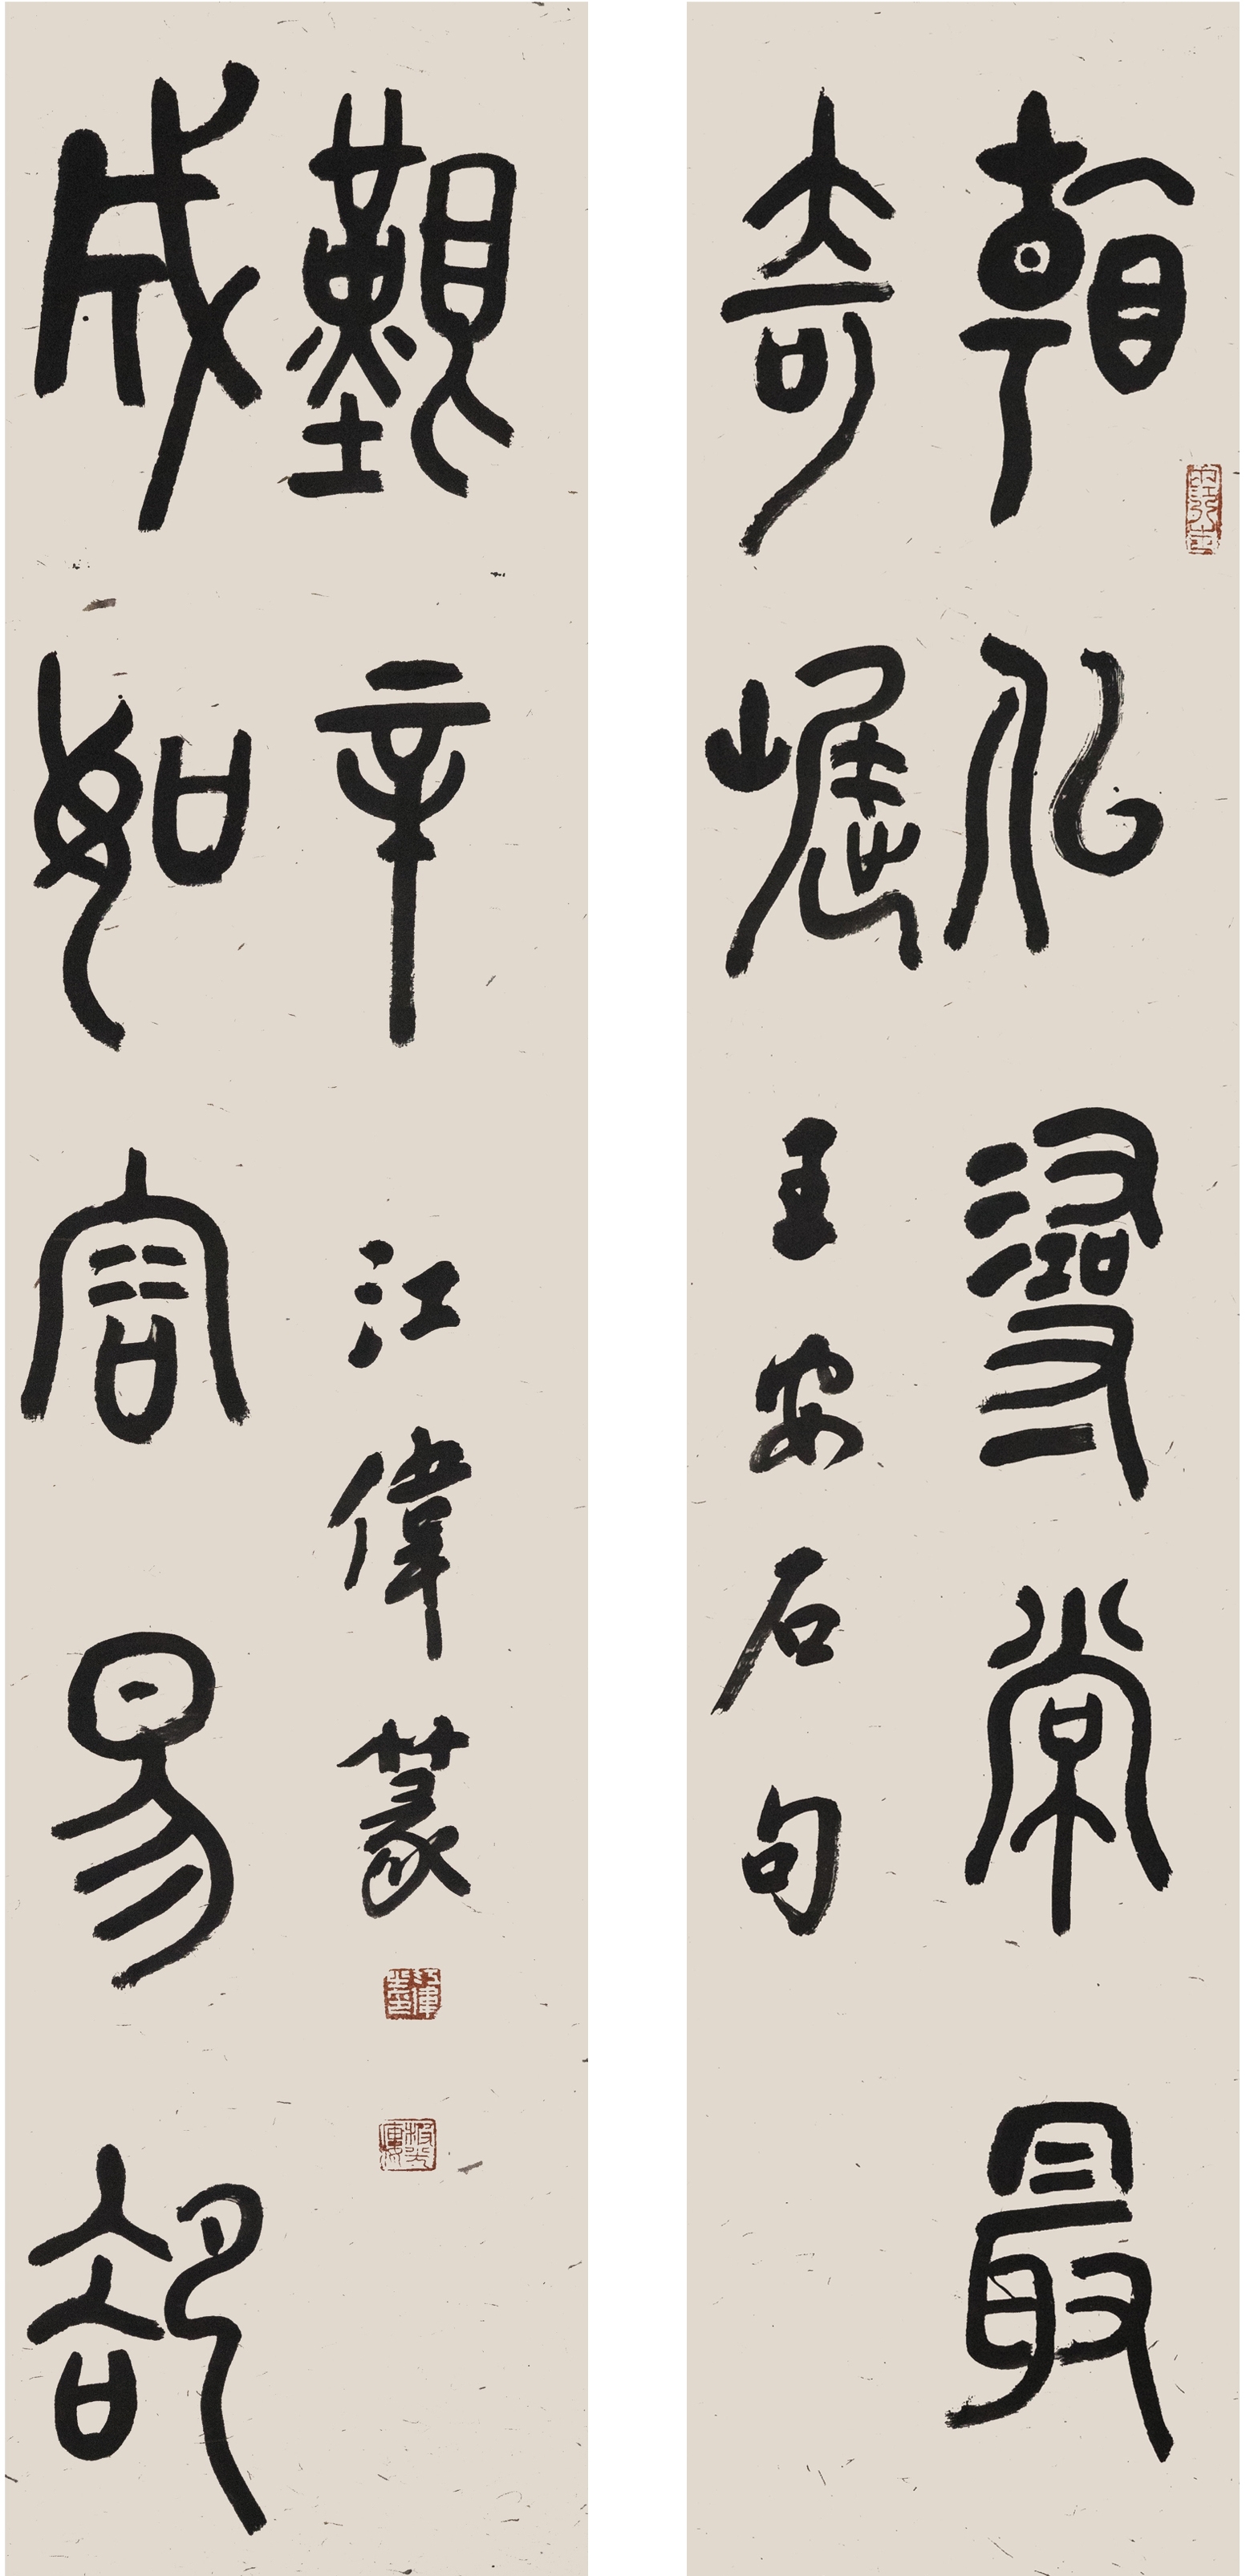 看似尋常最
奇崛
王安石句
成如容易卻
艱辛
江偉篆